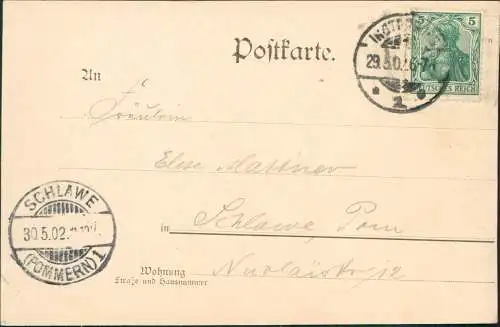 Postkarte.
5
DEUTSCHES REICH
29.5.02.6-7
1
An
Fräulein
Elise
SCHLAWE
30.5.02.
(POMMERN) 1
in Schlawe, Pom
Wohnung
Straße und Hausnummer